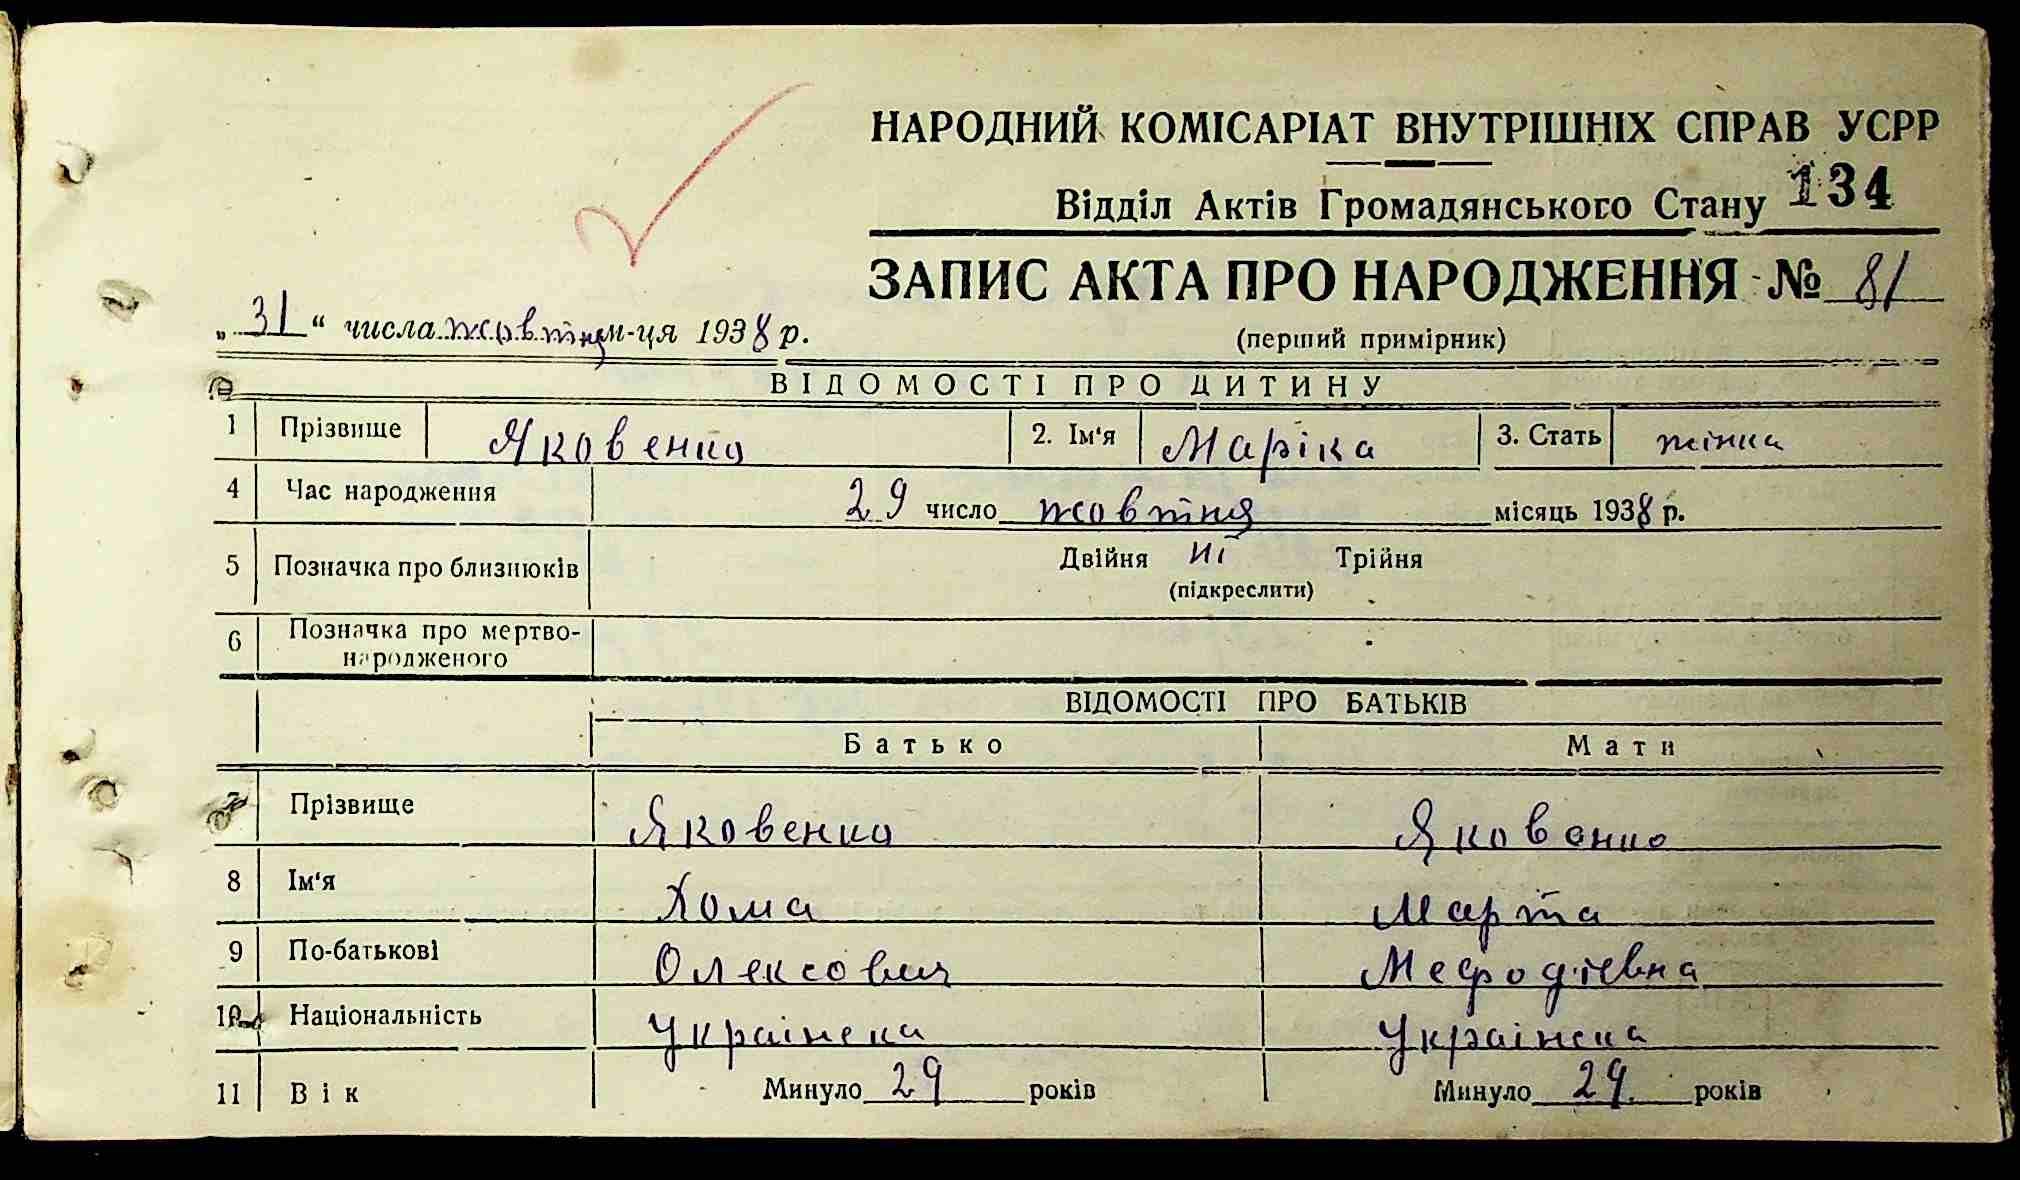 НАРОДНИЙ КОМІСАРІАТ ВНУТРІШНІХ СПРАВ УСРР
Відділ Актів Громадянського Стану 134
ЗАПИС АКТА ПРО НАРОДЖЕННЯ № 81
„31“ числа жовтня м-ця 1938 р.
(перший примірник)
ВІДОМОСТІ ПРО ДИТИНУ
1 Прізвище Яковенко 2. Ім'я Маріка 3. Стать жінка
4 Час народження 29 число жовтня місяць 1938 р.
5 Позначка про близнюків Двійня ні Трійня
(підкреслити)
6 Позначка про мертво-
народженого
ВІДОМОСТІ ПРО БАТЬКІВ
Батько Мати
7 Прізвище Яковенко Яковенко
8 Ім'я Хома Марта
9 По-батькові Олексович Мефодієвна
10 Національність Українска Українска
11 Вік Минуло 29 років Минуло 29 років